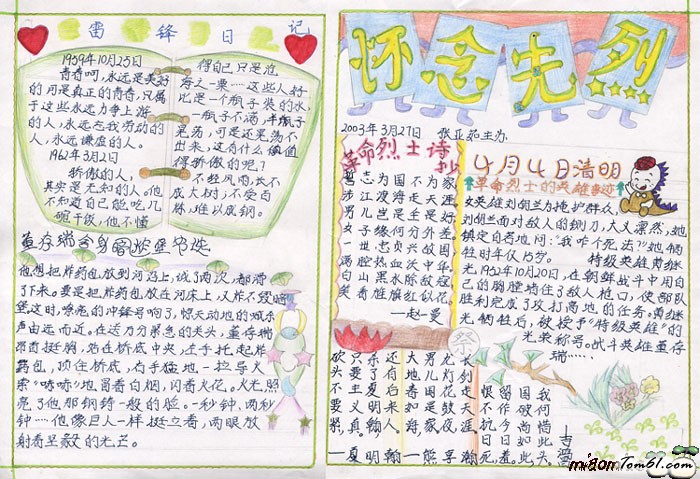 雷锋日记
1959年10月25日
青春呵,永远是美好
的,可是真正的青春,只属
于这些永远力争上游
的人,永远忘我劳动的
人,永远谦虚的人。
1962年3月2日
骄傲的人,
其实是无知的人。他
不知道自己能吃几
碗干饭,他不懂
得自己只是沧
海之一粟……这些人好
比是一个瓶子装的水,
一瓶子不满,半瓶子
晃荡,可是还晃荡不
出来,这有什么值值
得骄傲的呢?
不经风雨,长不
成大树;不受百
炼,难以成钢。
董存瑞舍身
他想把炸药包放到河沿上,试了两次,都滑
了下来。要是把炸药包放在河床上,又炸不毁暗
堡这时,嘹亮的冲锋号响了,惊天动地的喊杀
声由远而近。在这万分紧急的关头,董存瑞
昂首挺胸,站在桥底中央,左手托起炸
药包,顶住桥底,右手猛地一拉导火
索"哧哧"地冒着白烟,闪着火花。火光照
亮了他那钢铸一般的脸。一秒钟、两秒
钟……他像巨人一样挺立着,两眼放
射着坚毅的光芒。
怀念先烈
2003年3月27日 张亚茹主办
革命烈士诗抄
誓志为国不为家
涉江渡海走天涯
男儿岂是全是好
女子缘何分外差
一世忠贞兴故国
满腔热血沃中华
白山黑水除敌寇
笑看旌旗红似花
—赵一曼
4月4日清明
革命烈士的英雄事迹
女英雄刘胡兰为掩护群众,
刘胡兰面对敌人的铡刀,大义凛然,她
镇定自若地问:"我咋个死法?"她牺
牲时年仅15岁。 特级英雄黄继
光,1952年10月20日,在朝鲜战斗中用自
己的胸膛堵住了敌人枪口,使部队
胜利完成了攻打高地的任务,黄继
光牺牲后,被授予"特级英雄"的
光荣称号。战斗英雄董存
瑞……
祭
砍头不要紧,
只要主义真
杀了夏明翰
还有后来人。
—夏明翰
大地春如海,
男儿国是家。
龙灯花鼓夜,
长剑走天涯。
—熊亨瀚
恨不抗日死,
留作今日羞。
国破尚如此,
我何惜此头。
吉鸿昌
miaon.Tom61.com